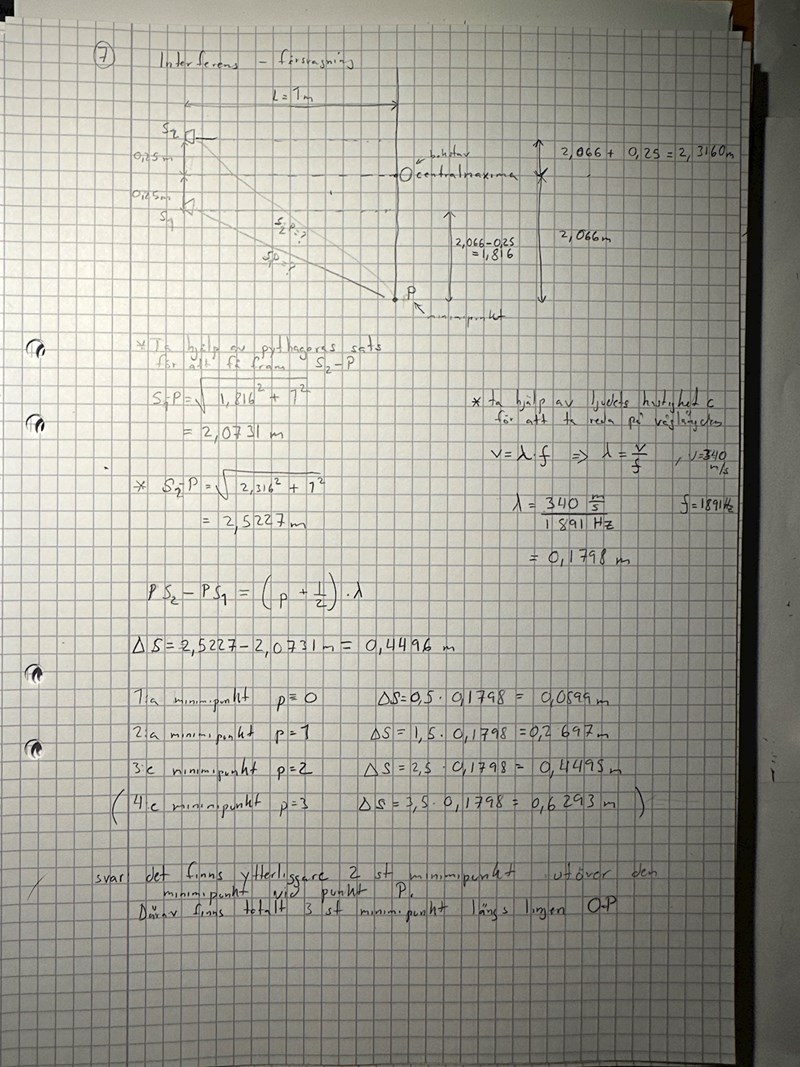 7
Interferens - försvagning
L = 1m
S2
0,25m
bokstav
O centralmaxima
2,066 + 0,25 = 2,3160m
0,25m
S1
S2P=?
S1P=?
2,066-0,25
= 1,816
2,066m
P
minimipunkt
* Ta hjälp av pythagoras sats
för att få fram S2-P
S1-P = √1,816² + 1²
= 2,0731 m
* ta hjälp av ljudets hastighet c
för att ta reda på våglängden
v = λ · f ⇒ λ = v/f , v=340 m/s
* S2-P = √2,316² + 1²
= 2,5227 m
λ = 340 m/s / 1891 Hz f=1891Hz
= 0,1798 m
PS2 - PS1 = (p + 1/2) · λ
ΔS = 2,5227 - 2,0731 m = 0,4496 m
1:a minimipunkt p=0 ΔS = 0,5 · 0,1798 = 0,0899 m
2:a minimipunkt p=1 ΔS = 1,5 · 0,1798 = 0,2697m
3:e minimipunkt p=2 ΔS = 2,5 · 0,1798 = 0,4495m
(4:e minimipunkt p=3 ΔS = 3,5 · 0,1798 = 0,6293 m)
svar det finns ytterliggare 2 st minimipunkt utöver den
minimipunkt vid punkt P.
Därav finns totalt 3 st minimipunkt längs linjen O-P